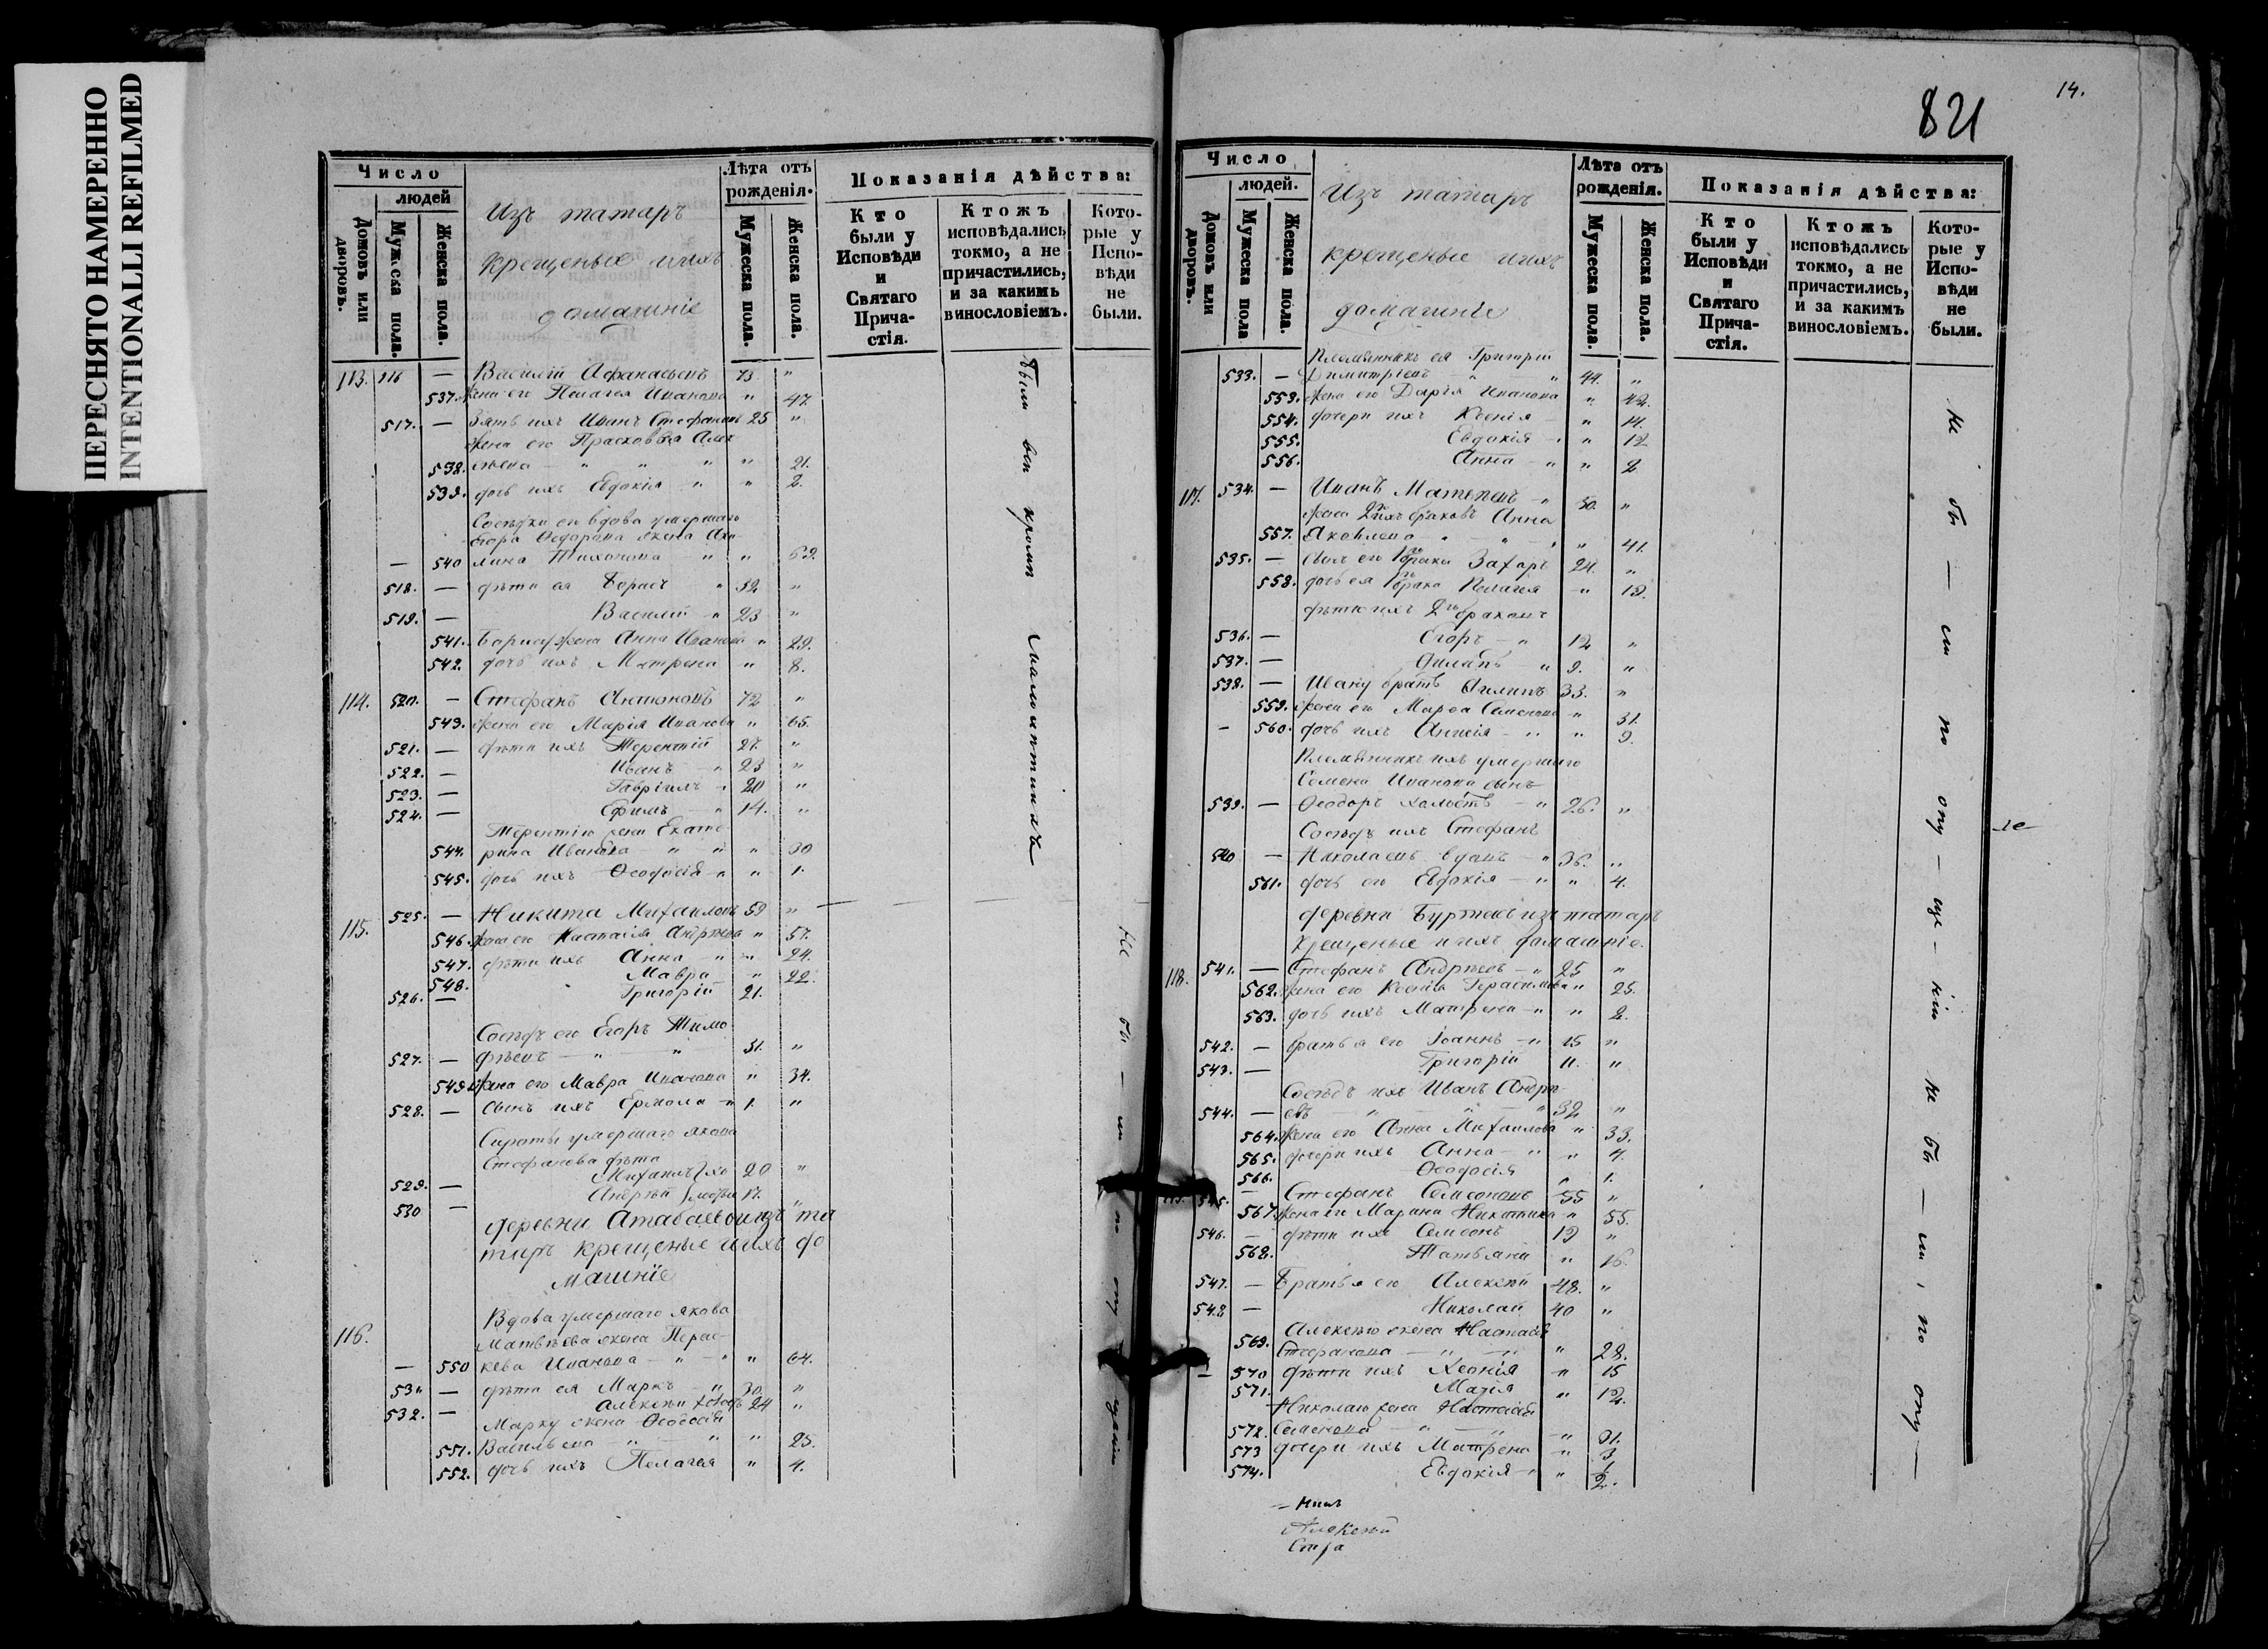 ПЕРЕСНЯТО НАМЕРЕННО
INTENTIONALLI REFILMED
Число
людей
Домовъ или дворовъ.
Мужеска пола.
Женска пола.
Изъ татаръ
крещеные и ихъ
домашніе
Лѣта отъ рожденія.
Мужеска пола.
Женска пола.
Показанія дѣйства:
Кто были у Исповѣди и Святаго Причастія.
Ктожъ исповѣдались токмо, а не причастились, и за какимъ винословіемъ.
Которые у Исповѣди не были.
113. 116 — Василій Афанасьевъ 73. "
537. жена его Пелагея Иванова " 47.
517. — Зять ихъ Иванъ Стефановъ 25 "
жена его Прасковья Алек
538. сѣева " " " " 21.
539. дочь ихъ Евдокія " " 2.
Сосѣдки его вдова умершаго
Егора Ѳедорова жена Аку-
— 540 лина Тихонова " " 69.
518. — дѣти ея Борисъ " 32 "
519. — Василій " 23 "
541. Борису жена Анна Иванова " 29.
542. дочь ихъ Матрена " 8.
114. 520. — Стефанъ Антоновъ 72 "
543. жена его Марія Иванова " 65.
521. — дѣти ихъ Терентій 27. "
522. — Иванъ " 23 "
523. — Гавріилъ " 20 "
524. — Ефимъ " 14. "
Терентію жена Екате-
544. рина Иванова " " " 30
545. дочь ихъ Ѳеодосія " " 1.
115. 525. — Никита Михаиловъ 59 "
546. жена его Настасія Андрѣева " 57.
547. дѣти ихъ Анна " " 24.
548. Мавра " 22.
526. — Григорій 21.
Сосѣдъ его Егоръ Тимо-
527. — фѣевъ " " 31. "
549. жена его Мавра Иванова " 34.
528. — сынъ ихъ Ермола " 1. "
Сироты умершаго Якова
Стефанова дѣти
529. — Михаилъ хо 20 "
530 — Андрей лосты 17. "
деревни Атабаевои изъ та
таръ крещеные и ихъ до
машніе
116. Вдова умершаго Якова
Матвѣева жена Парас-
— 550 кева Иванова " " " 64.
531 — дѣти ея Маркъ " 30. "
532. — Алексѣй холостъ 24 "
Марку жена Ѳеодосія
551. Васильева " " " 25.
552. дочь ихъ Пелагея " 4.
Были вси кромѣ малолѣтнихъ
Не бы — ли по опу щенію
14.
821
Число
людей.
Домовъ или дворовъ.
Мужеска пола
Женска пола.
Изъ татаръ
крещеные и ихъ
домашніе
Лѣта отъ рожденія.
Мужеска пола.
Женска пола.
Показанія дѣйства:
Кто были у Исповѣди и Святаго Причастія.
Ктожъ исповѣдались токмо, а не причастились, и за какимъ винословіемъ.
Которые у Исповѣди не были.
Племянникъ ея Григорій
533. — Димитріевъ " " 44. "
553. жена его Дарія Иванова " 42.
554. дочери ихъ Ксенія — " 14.
555. Евдокія " " 12
556. Анна " " 2
117. 534. — Иванъ Матвеевъ " 50. "
жена 2ихъ браковъ Анна
557. Яковлева " " " " 41.
535. — сынъ его 1го брака Захаръ 24. "
558. дочь ея 1го брака Пелагея " 19.
дѣти ихъ 2го браковъ
536. — Егоръ " 12 "
537. — Филипъ " 9. "
538. — Ивану братъ Филипъ 33. "
559. жена его Марѳа Семенова " 31.
— 560. дочь ихъ " " 9.
Племянникъ ихъ умершаго
Семена Иванова сынъ
539. — Ѳеодоръ холостъ " 26. "
Сосѣдъ ихъ Стефанъ
540 — Николаевъ вдовъ " 36. "
561. дочь его Евдокія " " 4.
деревни изъ татаръ
крещеные и ихъ домашніе.
118. 541. — Стефанъ Андрѣевъ " 25 "
562. жена его Ксенія Герасимова " 25.
563. дочь ихъ Матрена " " 2.
542. — братья его Іоаннъ " 15 "
543. — Григорій 11. "
Сосѣдъ ихъ Иванъ Андрѣ-
544. — евъ " " " 32 "
564. жена его Анна Михаилова " 33.
565. дочери ихъ Анна " " 4.
566. Ѳеодосія " 1.
545. — Стефанъ Семеоновъ 55 "
567. жена его Марина Никитина " 55.
546. — дѣти ихъ Семеонъ 19 "
568. Татьяна " 16.
547. — Братья его Алексѣй 48. "
548 — Николай 40 "
Алексѣю жена Настасія
569. Стефанова " " " 28.
— 570 дѣти ихъ Ксенія " 15
571. Марія " 12.
Николаю жена Настасія
572. Семенова " " " 31.
573 дочери ихъ Матрена " 3
574. Евдокія " " 1/2.
Не бы — ли по опу — ще — нію Не бы — ли, по опу —
Алексѣй